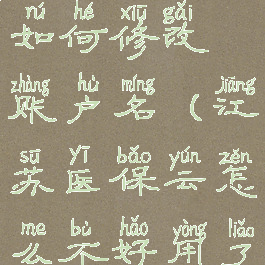 rú hé xiū gǎi
如何修改
zhàng hù míng jiāng
账户名（江
sū yī bǎo yún zěn
苏医保云怎
me bù hǎo yòng liǎo
么不好用了